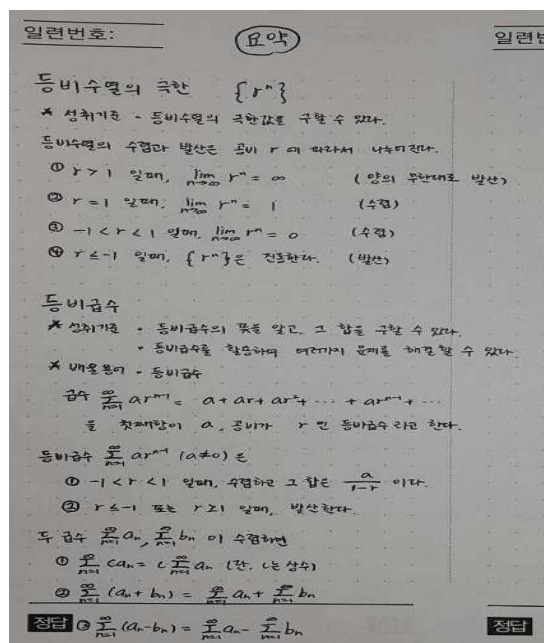 일련번호:
요약
일련번
등비수열의 극한 {rⁿ}
* 성취기준 - 등비수열의 극한값을 구할 수 있다.
등비수열의 수렴과 발산은 공비 r에 따라서 나누어진다.
① r > 1 일때, lim_{n→∞} rⁿ = ∞ (양의 무한대로 발산)
② r = 1 일때, lim_{n→∞} rⁿ = 1 (수렴)
③ -1 < r < 1 일때, lim_{n→∞} rⁿ = 0 (수렴)
④ r ≤ -1 일때, {rⁿ}은 진동한다. (발산)
등비급수
* 성취기준 - 등비급수의 뜻을 알고, 그 합을 구할 수 있다.
- 등비급수를 활용하여 여러가지 문제를 해결할 수 있다.
* 배울용어 - 등비급수
급수 ∑_{n=1}^{∞} arⁿ⁻¹ = a + ar + ar² + ⋯ + arⁿ⁻¹ + ⋯
을 첫째항이 a, 공비가 r인 등비급수라고 한다.
등비급수 ∑_{n=1}^{∞} arⁿ⁻¹ (a≠0)은
① -1 < r < 1 일때, 수렴하고 그 합은 a/(1-r) 이다.
② r ≤ -1 또는 r ≥ 1 일때, 발산한다.
두 급수 ∑_{n=1}^{∞} aₙ, ∑_{n=1}^{∞} bₙ 이 수렴하면
① ∑_{n=1}^{∞} caₙ = c ∑_{n=1}^{∞} aₙ (단, c는 상수)
② ∑_{n=1}^{∞} (aₙ + bₙ) = ∑_{n=1}^{∞} aₙ + ∑_{n=1}^{∞} bₙ
정답 ③ ∑_{n=1}^{∞} (aₙ - bₙ) = ∑_{n=1}^{∞} aₙ - ∑_{n=1}^{∞} bₙ
정답